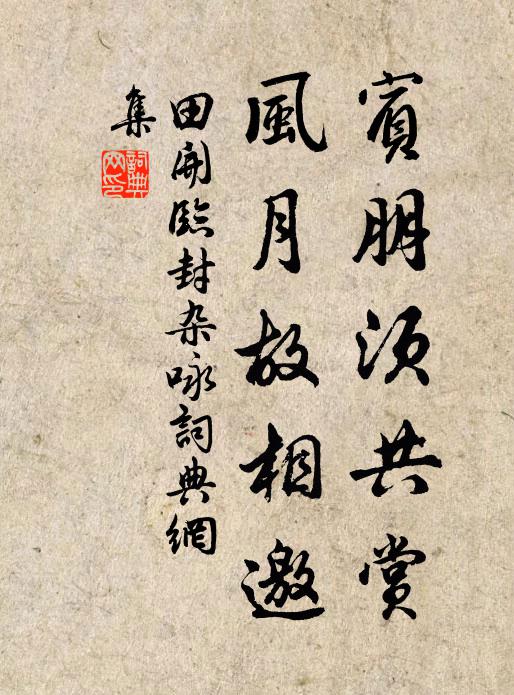 賓朋須共賞
風月故相邀
田開臨封杂咏詞典網
集
詞典
网印